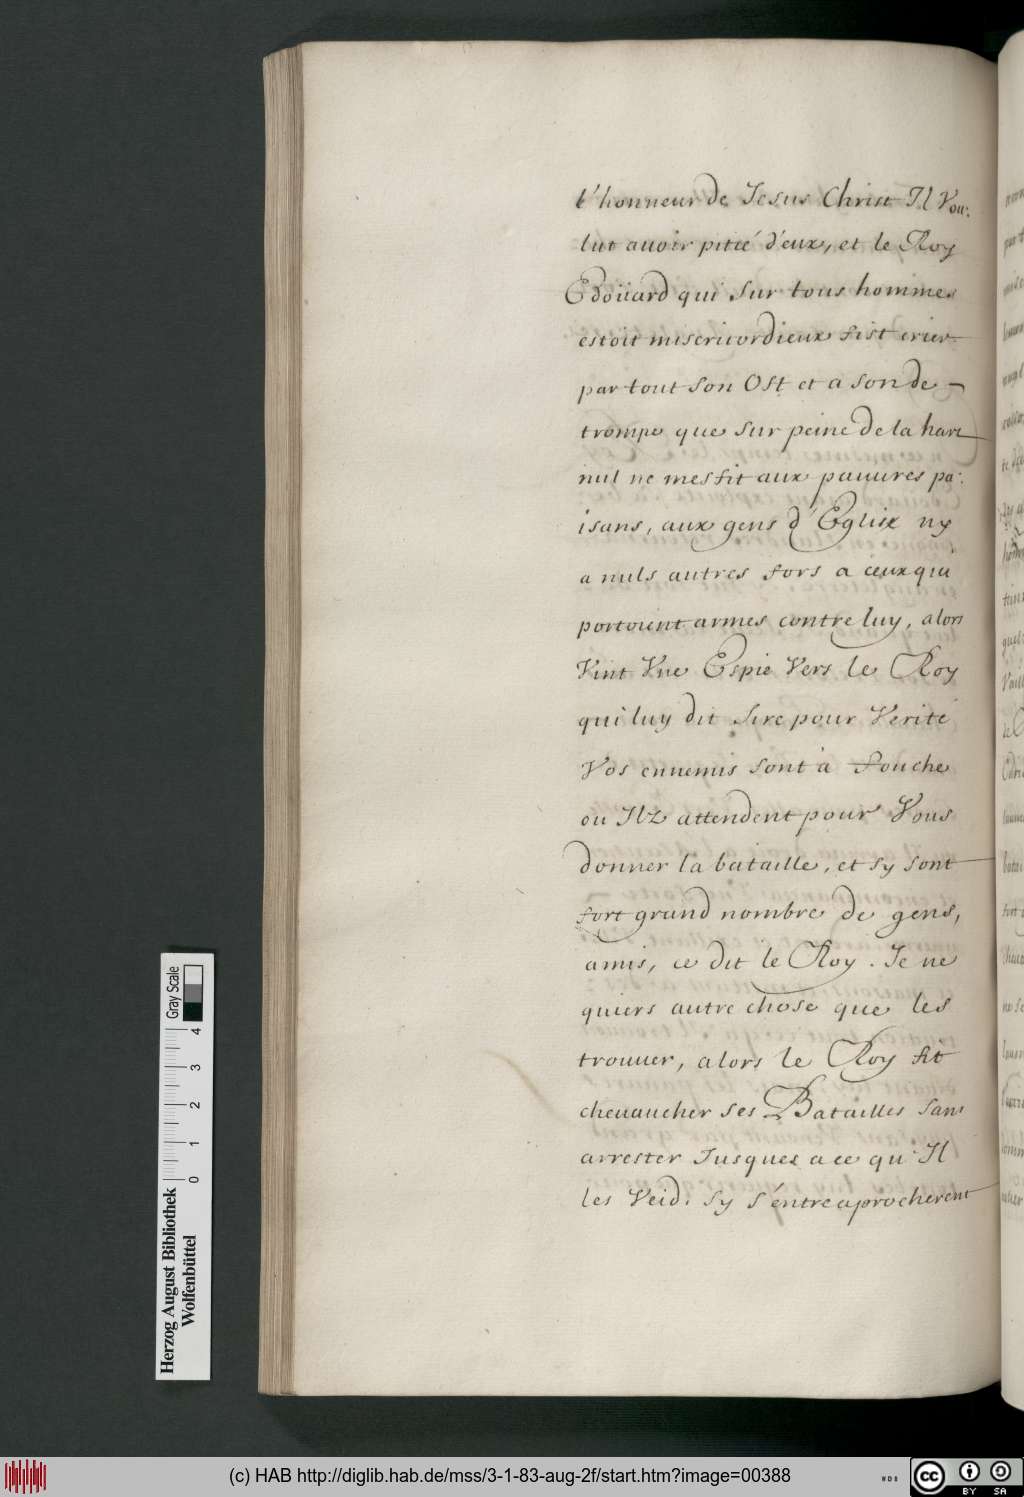 l'honneur de Jesus Christ Il Vou:
lut auoir pitié d'eux, et le Roy
Edoüard qui sur tous hommes
estoit misericordieux fist crier
par tout son Ost et a son de
trompe que sur peine de la hart
nul ne mesfit aux pauures pa:
isans, aux gens d'Eglise ny
a nuls autres fors a ceux qui
portoient armes contre luy, alors
Vint Vne Espie Vers le Roy
qui luy dit Sire pour Verité
Vos ennemis sont à Fouche
ou Ilz attendent pour Vous
donner la bataille, et sy sont
fort grand nombre de gens,
amis, ce dit le Roy. Je ne
quiers autre chose que les
trouuer, alors le Roy fit
cheuaucher ses Batailles sans
arrester Jusques a ce qu'Il
les Veid. Sy s'entreaprocherent
Herzog August Bibliothek
Wolfenbüttel
0 1 2 3 4
Gray Scale
(c) HAB http://diglib.hab.de/mss/3-1-83-aug-2f/start.htm?image=00388
WDB
cc BY SA